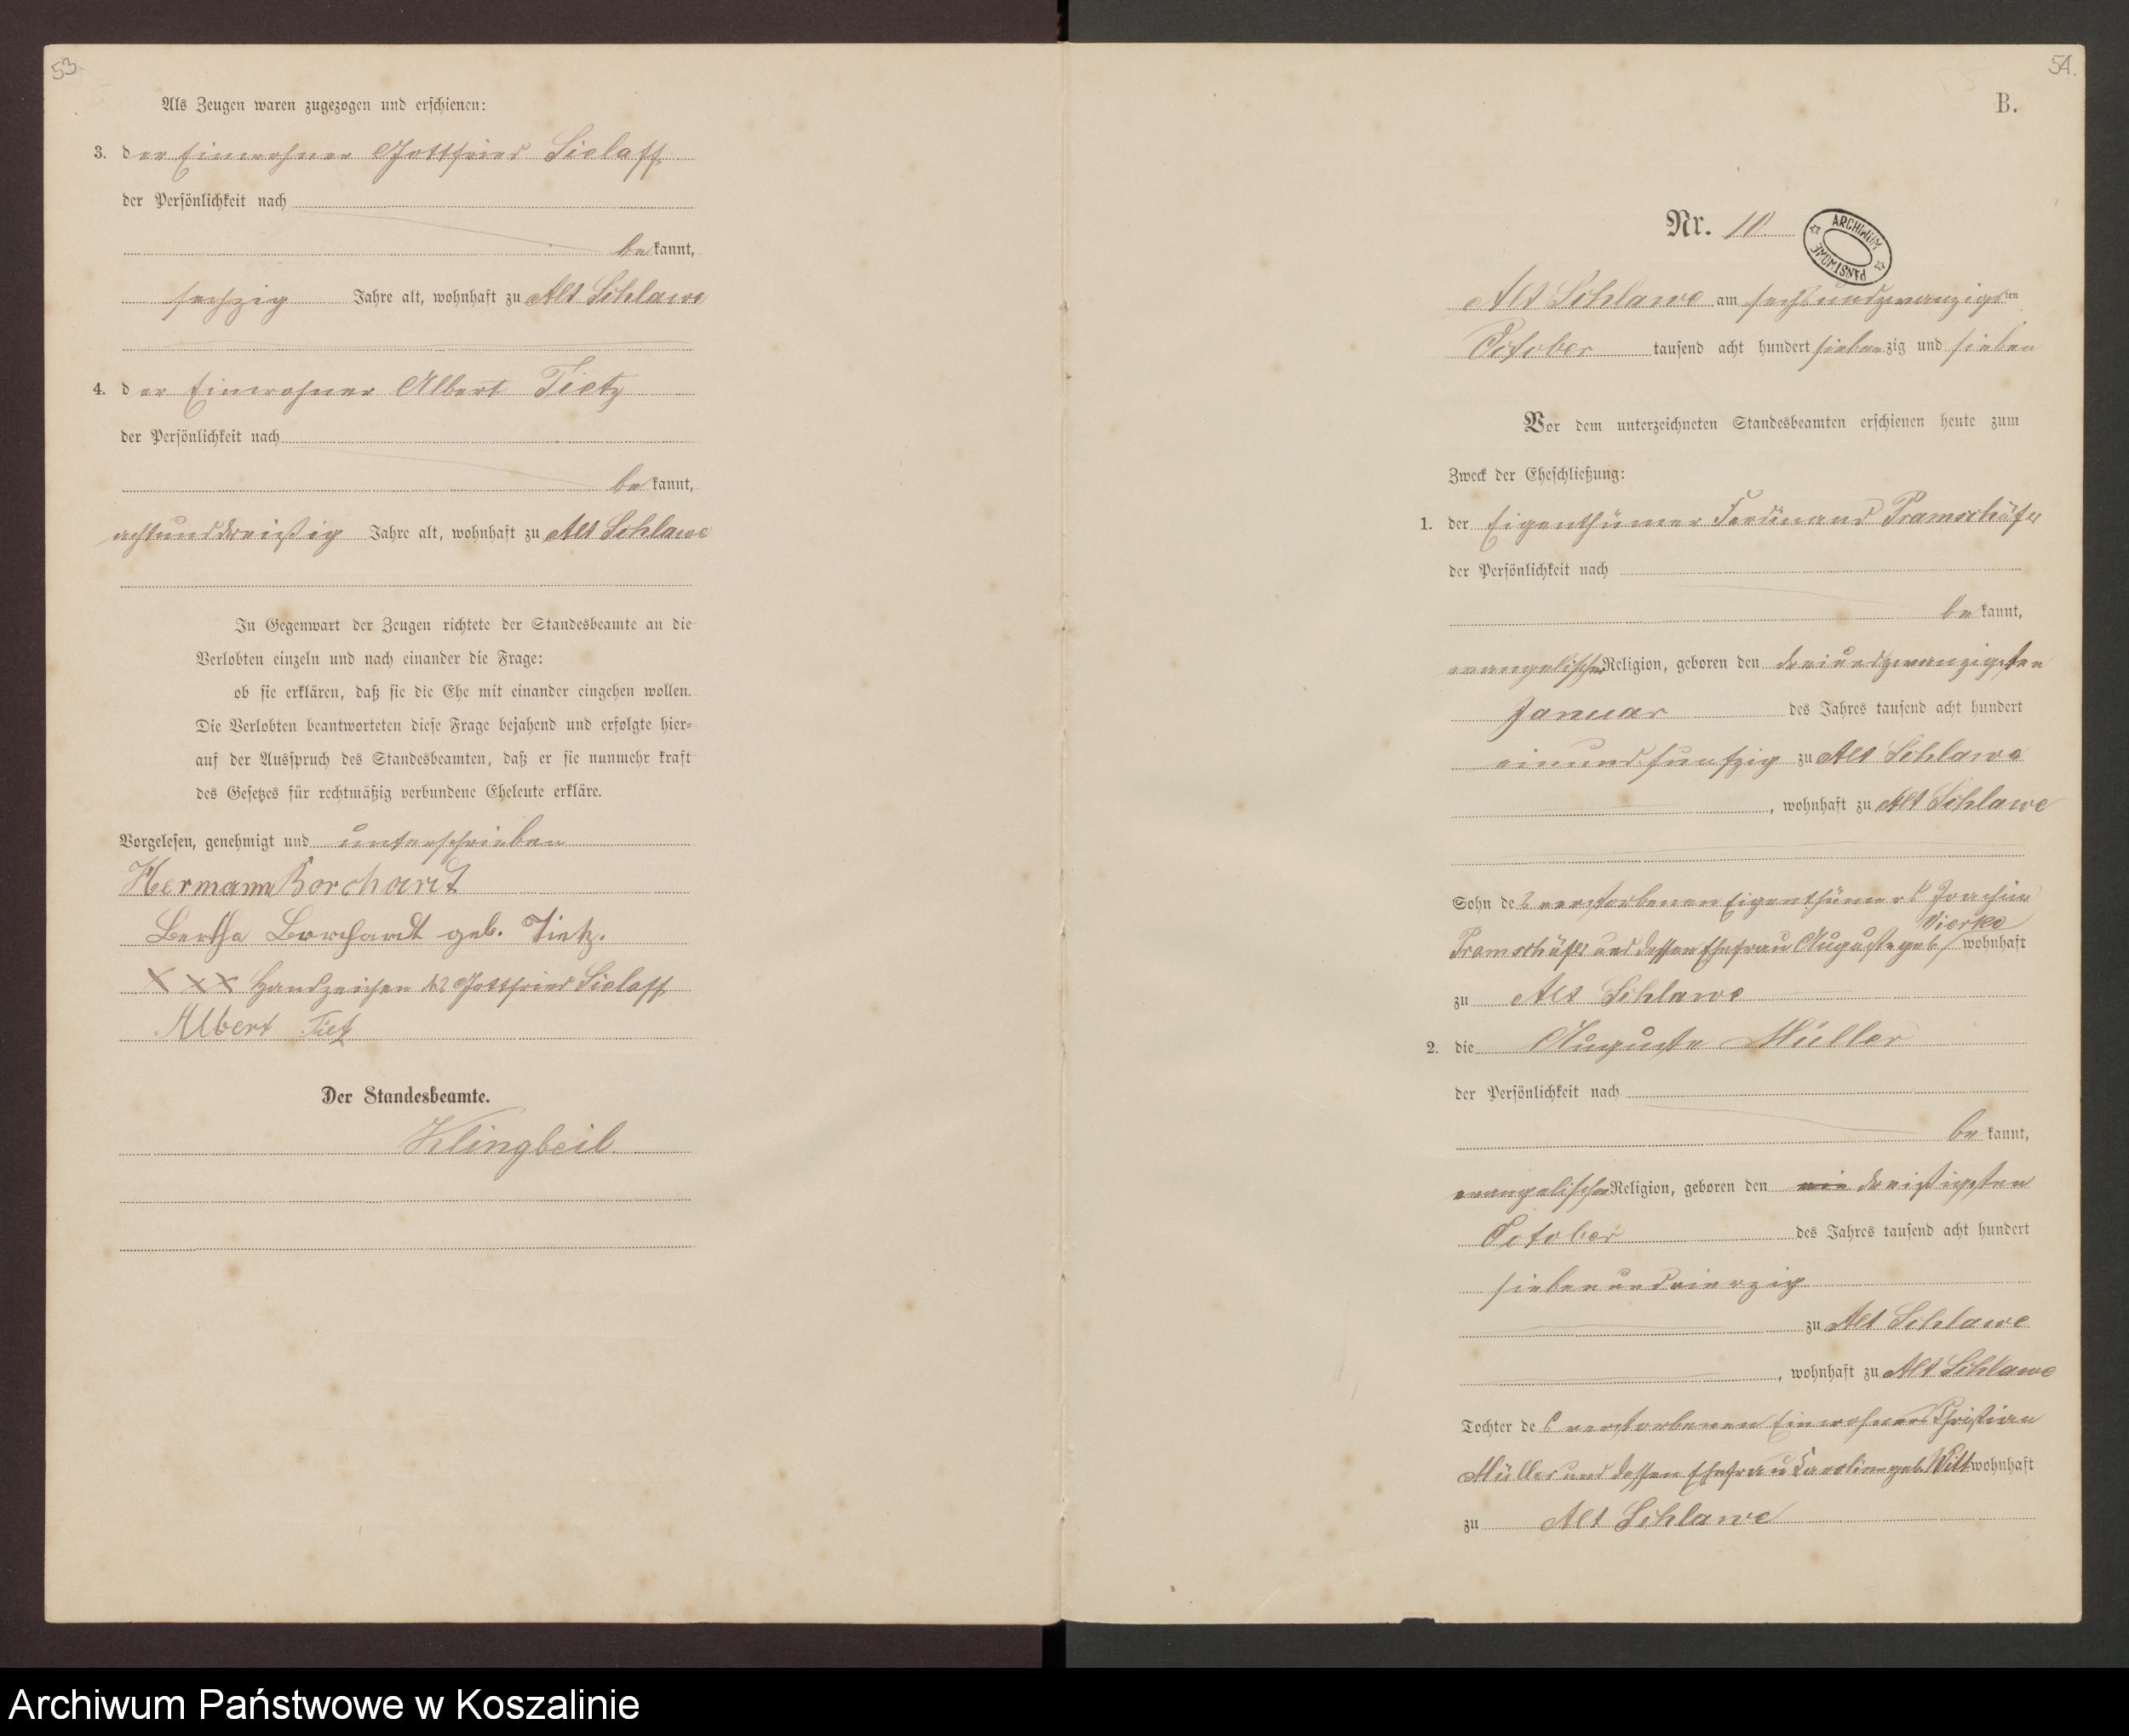 53.
Als Zeugen waren zugezogen und erschienen:
3. der Einwohner Gottfried Sielaff
der Persönlichkeit nach
bekannt,
sechzig Jahre alt, wohnhaft zu Alt Schlawe
4. der Einwohner Albert Tietz
der Persönlichkeit nach
bekannt,
achtunddreißig Jahre alt, wohnhaft zu Alt Schlawe
In Gegenwart der Zeugen richtete der Standesbeamte an die
Verlobten einzeln und nach einander die Frage:
ob sie erklären, daß sie die Ehe mit einander eingehen wollen.
Die Verlobten beantworteten diese Frage bejahend und erfolgte hier-
auf der Ausspruch des Standesbeamten, daß er sie nunmehr kraft
des Gesetzes für rechtmäßig verbundene Eheleute erkläre.
Vorgelesen, genehmigt und unterschrieben
Hermann Borchardt
Bertha Borchardt geb. Tietz.
XXX Handzeichen des Gottfried Sielaff
Albert Tietz
Der Standesbeamte.
Klingbeil.
54.
B.
Nr. 10
ARCHIWUM PAŃSTWOWE
Alt Schlawe am sechsundzwanzigsten
October tausend acht hundert siebenzig und sieben
Vor dem unterzeichneten Standesbeamten erschienen heute zum
Zweck der Eheschließung:
1. der Eigenthümer Ferdinand Pramschüfer
der Persönlichkeit nach
bekannt,
evangelischer Religion, geboren den dreiundzwanzigsten
Januar des Jahres tausend acht hundert
einundfunfzig zu Alt Schlawe
, wohnhaft zu Alt Schlawe
Sohn des verstorbenen Eigenthümers Joachim
Vierke
Pramschüfer und dessen Ehefrau Auguste geb. wohnhaft
zu Alt Schlawe
2. die Auguste Müller
der Persönlichkeit nach
bekannt,
evangelischer Religion, geboren den ein dreißigsten
October des Jahres tausend acht hundert
siebenundvierzig
zu Alt Schlawe
, wohnhaft zu Alt Schlawe
Tochter des verstorbenen Einwohners Christian
Müller und dessen Ehefrau Karoline geb. Witt wohnhaft
zu Alt Schlawe
Archiwum Państwowe w Koszalinie